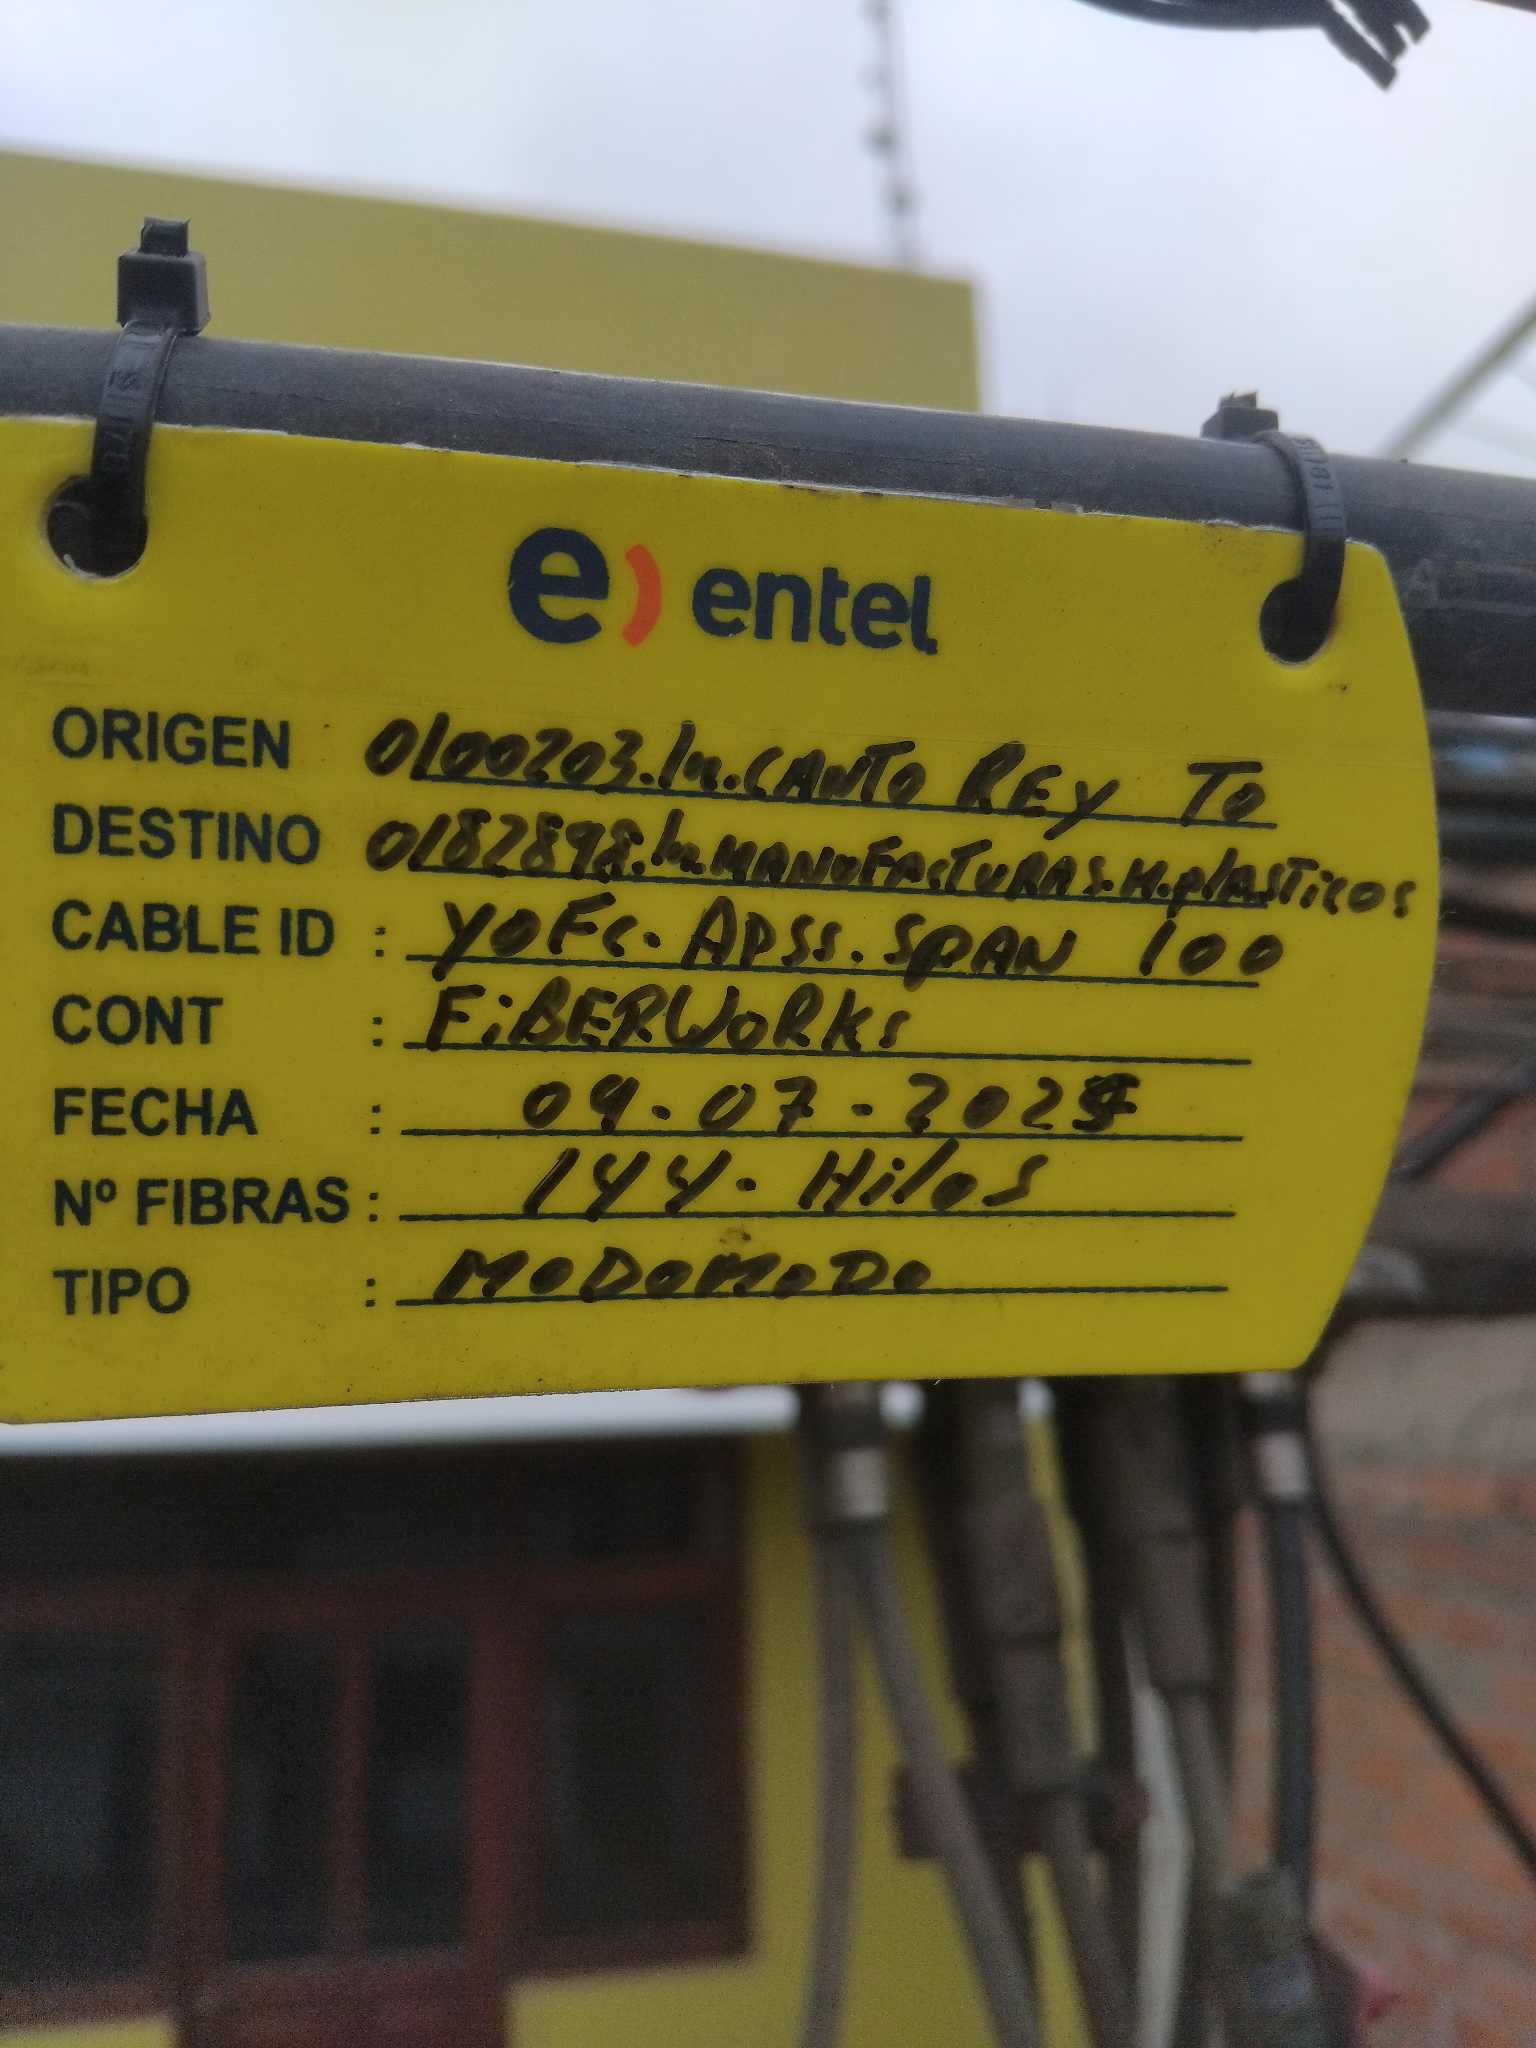 e) entel
ORIGEN 0100203.lm.CANTO REY TO
DESTINO 0182898.lm.MANUFACTURAS.M.plASTicos
CABLE ID : YOFC. ADSS. SPAN 100
CONT : FiBERWORKs
FECHA : 09.07.2025
Nº FIBRAS : 144. Hilos
TIPO : MODOMODO